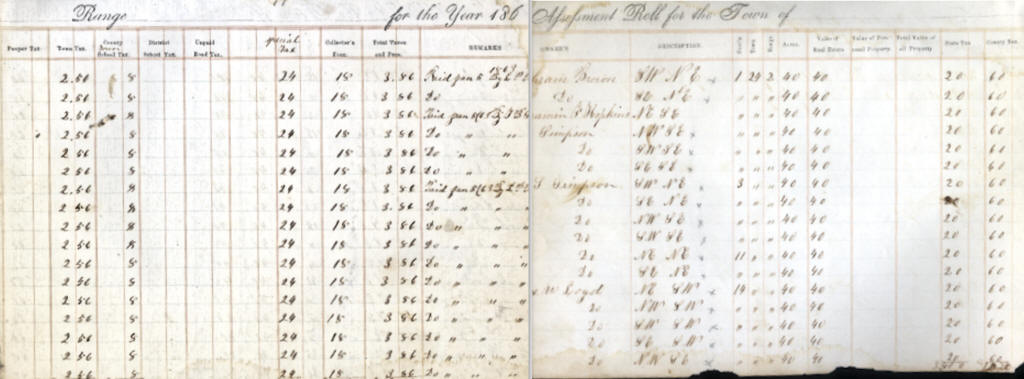 Range for the Year 186
Pauper Tax. Town Tax. County School Tax. District School Tax. Unpaid Road Tax. Special Tax Collector's Fees. Total Taxes and Fees. REMARKS
2.56 8 24 18 3.86 Paid Jan 5
2.56 8 24 18 3 86 Do
2 56 8 24 18 3 86 Paid Jan
2 56 8 24 18 3 86 Do " "
2 56 8 24 18 3 86 Do " "
2 56 8 24 18 3 86 Do " "
2 56 8 24 18 3 86 Paid Jan
2 56 8 24 18 3 86 Do " "
2 56 8 24 18 3 86 Do " "
2 56 8 24 18 3 86 Do " "
2 56 8 24 18 3 86 Do " "
2 56 8 24 18 3 86 Do " "
2 56 8 24 18 3 86 Do " "
2 56 8 24 18 3 86 Do " "
2 56 8 24 18 3 86 Do " "
2 56 8 24 18 3 86 Do " "
2 56 8 24 18 3 86 Do " "
Assessment Roll for the Town of
OWNER'S DESCRIPTION. Acres. Value of Real Estate Value of Personal Property. Total Value of all Property State Tax County Tax.
Brown SW NE 1 24 2 40 40 20 60
Do SE NE " " " 40 40 20 60
Hopkins NE SE " " " 40 40 20 60
Simpson NW SE " " " 40 40 20 60
Do SW SE " " " 40 40 20 60
Do SE SE " " " 40 40 20 60
Simpson SW NE 3 " " 40 40 20 60
Do SE NE " " " 40 40 60
Do NW SE " " " 40 40 20 60
Do SW SE " " " 40 40 20 60
Do NE NE 11 " " 40 40 20 60
Do SE NE " " " 40 40 20 60
Loyd NE SW 14 " " 40 40 20 60
Do NW SW " " " 40 40 20 60
Do SW SW " " " 40 40 20 60
Do SE SW " " " 40 40 20 60
Do NW SE " " " 40 40